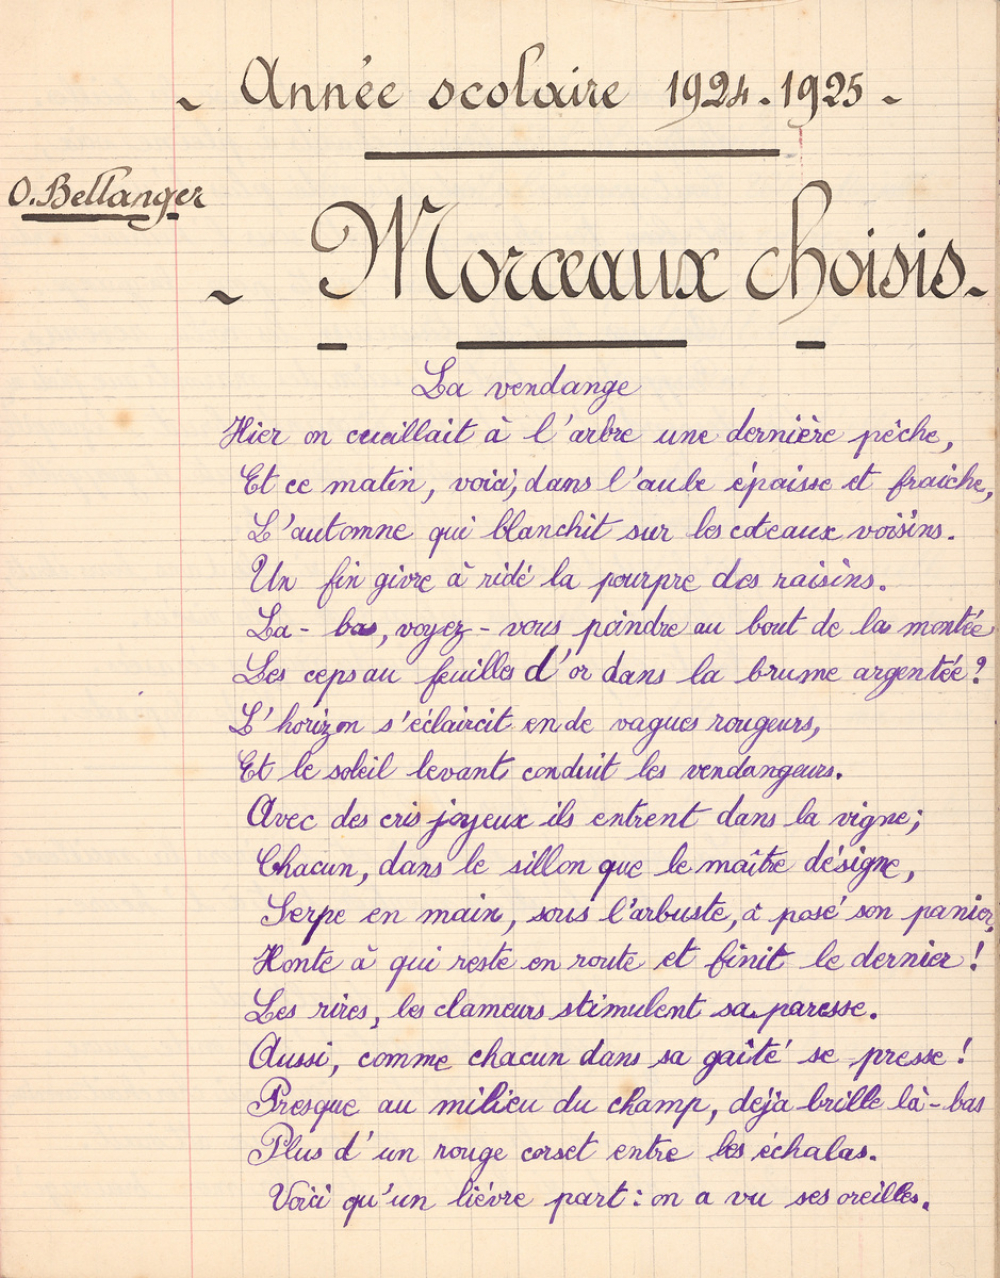 ~ Année scolaire 1924-1925 -
O. Bellanger
~ Morceaux choisis.
La vendange
Hier on cueillait à l'arbre une dernière pêche,
Et ce matin, voici, dans l'aube épaisse et fraiche,
L'automne qui blanchit sur les coteaux voisins.
Un fin givre à ridé la pourpre des raisins.
La-bas, voyez-vous poindre au bout de la montée
Les ceps au feuilles d'or dans la brume argentée?
L'horizon s'éclaircit en de vagues rougeurs,
Et le soleil levant conduit les vendangeurs.
Avec des cris joyeux ils entrent dans la vigne;
Chacun, dans le sillon que le maître désigne,
Serpe en main, sous l'arbuste, a posé son panier,
Honte à qui reste en route et finit le dernier!
Les rires, les clameurs stimulent sa paresse.
Aussi, comme chacun dans sa gaîté se presse!
Presque au milieu du champ, déjà brille là-bas
Plus d'un rouge corset entre les échalas.
Voici qu'un lièvre part: on a vu ses oreilles.